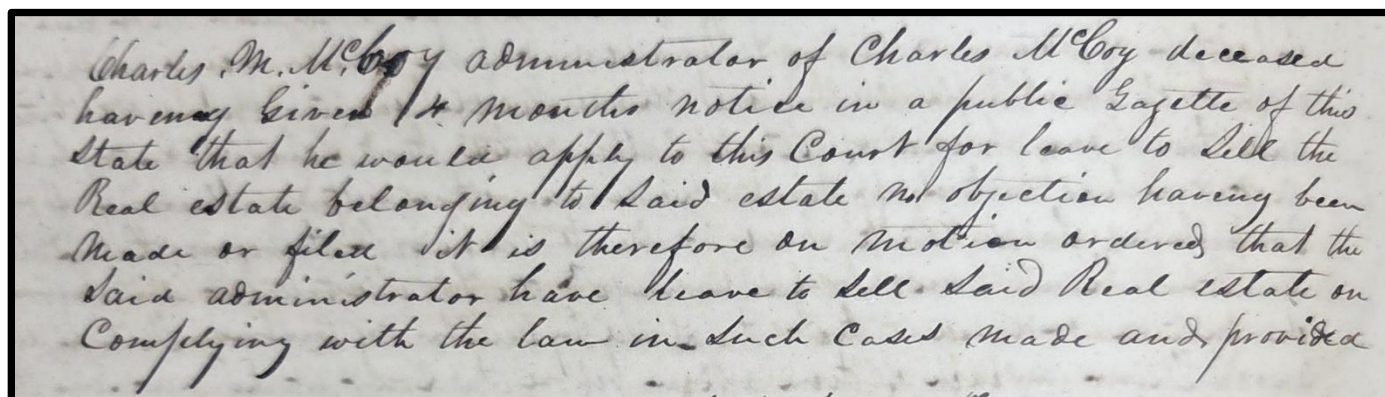 Charles. M. McCoy administrator of Charles McCoy deceased
haveing Given 4 months notice in a public Gazette of this
State that he would apply to this Court for leave to Sell the
Real estate belonging to Said estate no objection having been
made or filed it is therefore on motion ordered that the
Said administrator have leave to Sell Said Real estate on
Complying with the law in Such Cases made and provided